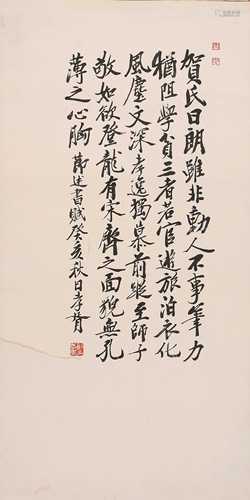 賀氏日朗雖非勍人不事筆力
猶阻學貧三者若宦遊旅泊衣化
風塵文深孝逸獨慕前蹤至師子
敬如欲登龍有宋齊之面貌無孔
薄之心胸 節述書賦癸亥秋日孝贊